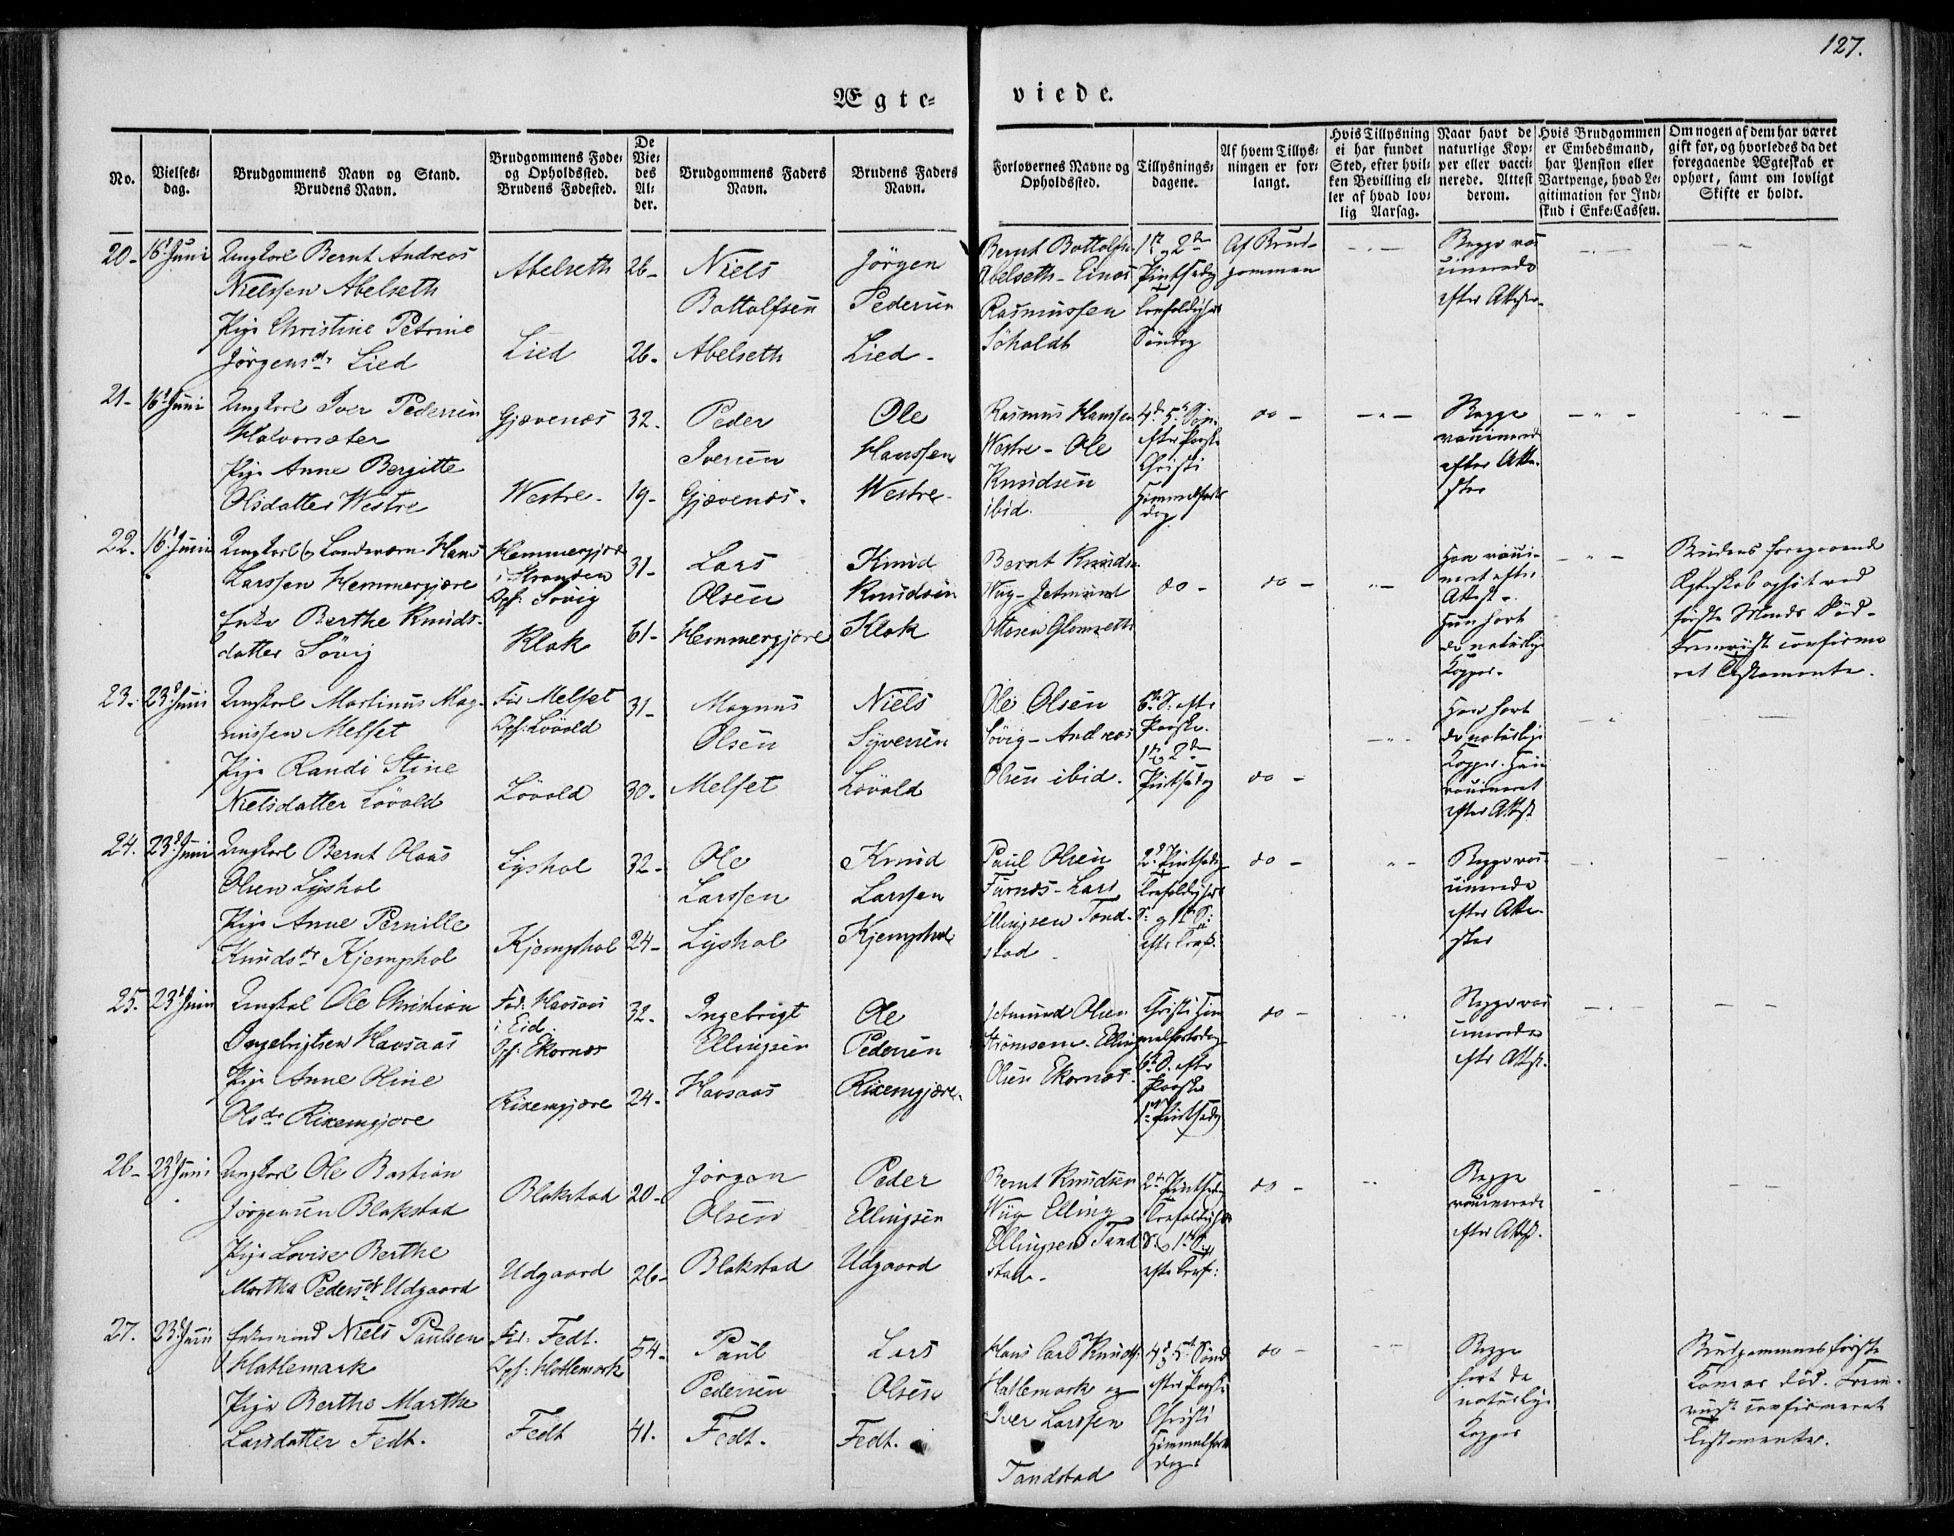 127.
Ægte-
viede.
No.
Vielses-
dag.
Brudgommens Navn og Stand.
Brudens Navn.
Brudgommens Føde-
og Opholdssted.
Brudens Fødested.
De
Vie-
des
Al-
der.
Brudgommens Faders
Navn.
Brudens Faders
Navn.
Forlovernes Navne og
Opholdssted.
Tillysnings-
dagene.
Af hvem Tillys-
ningen er for-
langt.
Hvis Tillysning
ei har fundet
Sted, efter hvil-
ken Bevilling el-
ler af hvad lov-
lig Aarsag.
Naar havt de
naturlige Kop-
per eller vacci-
nerede. Attest
derom.
Hvis Brudgommen
er Embedsmand,
har Pension eller
Vartpenge, hvad Le-
gitimation for Ind-
skud i Enke-Cassen.
Om nogen af dem har været
gift før, og hvorledes da det
foregaaende Ægteskab er
ophørt, samt om lovligt
Skifte er holdt.
20-
16d Juni
Ungkarl Bernt Andreas
Nielssen Abelseth
Pige Christine Petrine
Jörgensdr Lied
Abelseth
Lied
26-
26-
Niels
Bottolfsen
Abelseth
Jörgen
Pedersen
Lied-
Bernt Bottolfsen
Abelseth- Einar
Rasmussen
Söholdt
1ste 2den
Pintsedag
Trefoldigheds
Söndag
Af Brud-
gommen
Begge vac-
cinerede
efter Attester-
21-
16d Juni
Ungkarl Iver Pedersen
Halvorsæter
Pige Anne Bergitte
Olsdatter Westre
Gjævenæs
Westre-
32-
19-
Peder
Iversen
Gjævenæs-
Ole
Hanssen
Westre-
Rasmus Hanssen
Westre- Ole
Knudsen
ibid.
4de 5te Sön-
efter Paaske
Christi
Himmelfarts
dag
do -
Begge
vaccinerede
efter Atte-
ster
22-
16d Juni
Ungkarl Landværn Hans
Larssen Hemmergjære
Enke Berthe Knuds-
datter Sövig
Hemmergjære
i Stranden
Opf: Sövig
Klok
31-
61-
Lars
Olsen
Hemmergjære
Knud
Knudsen
Klok
Bernt Knudsen
Wiig- Jetmund
Ottosen Glomseth
do -
do -
Han vacci-
neret efter
Attest-
Hun havt
de naturlige
Kopper.
Brudens foregaaende
Ægteskab ophört ved
förste Mands Död-
Fremviist confirme
ret Testamente.
23.
23d Juni
Ungkarl Martinus Mag-
nussen Melset
Pige Randi Stine
Nielsdatter Lövold
Föd Melset
Opf: Lövold
Lövold
31-
30-
Magnus
Olsen
Melset
Niels
Syversen
Lövold
Ole Olsen
Sövig- Andreas
Olsen ibid.
6te S. efter
Paaske.
1ste 2den
Pintsedag
do -
Han havt
de naturlige
Kopper. Hun
vaccineret
efter Attest
24.
23d Juni
Ungkarl Bernt Olaus
Olsen Lyshol
Pige Anne Pernille
Knudsdr Kjemphol
Lyshol
Kjemphol
32-
24-
Ole
Larssen
Lyshol
Knud
Larssen
Kjemphol
Paul Olsen
Furnæs- Lars
Ellingsen Tand-
stad -
2d Pintsedag
Trefoldigheds
S: og 1ste S:
efter Tref.
do -
Begge vac-
cinerede
efter Atte-
ster
25.
23d Juni
Ungkarl Ole Christian
Ingebrigtsen Havsaas
Pige Anne Oline
Olsdr Rixemgjære
Föd: Havsaas
i Eid.
Opf: Ekornæs
Rixemgjære
32-
24-
Ingebrigt
Ellingsen
Havsaas
Ole
Pedersen
Rixemgjære-
Jetmund Olsen
Strömsem- Elling
Olsen Ekornæs-
Christi Him
melfartsdag
6te S. efter
Paaske
1ste Pintsedag
do -
Begge vac-
cinerede
efter Attest.
26-
23d Juni
Ungkarl Ole Bastian
Jörgensen Blakstad
Pige Lovise Berthe
Martha Pedersdr Udgaard
Blakstad
Udgaard
20-
26-
Jörgen
Olsen
Blakstad
Peder
Ellingsen
Udgaard
Bernt Knudsen
Wiig- Elling
Ellingsen Tand
stad-
2den Pintsedag
Trefoldigheds
S. og 1ste S.
efter Tref:
do -
Begge
vaccinerede
efter Attest.
27.
23d Juni
Enkemand Niels Paulsen
Hatlemark
Pige Berthe Marthe
Larsdatter Fedt.
Föd: Fedt.
Opf: Hatlemark
Fedt
54-
41.
Paul
Pedersen
Fedt.
Lars
Olsen
Fedt.
Hans Carl Knuds:
Hatlemark og
Iver Larssen
Tandstad
4de 5te Sönd
efter Paaske
Christi
Himmelfarts
dag.
do -
Begge
havt de
naturlige
Kopper
Brudgommens förste
Kone er död. Frem-
viist confirmeret
Testamente.